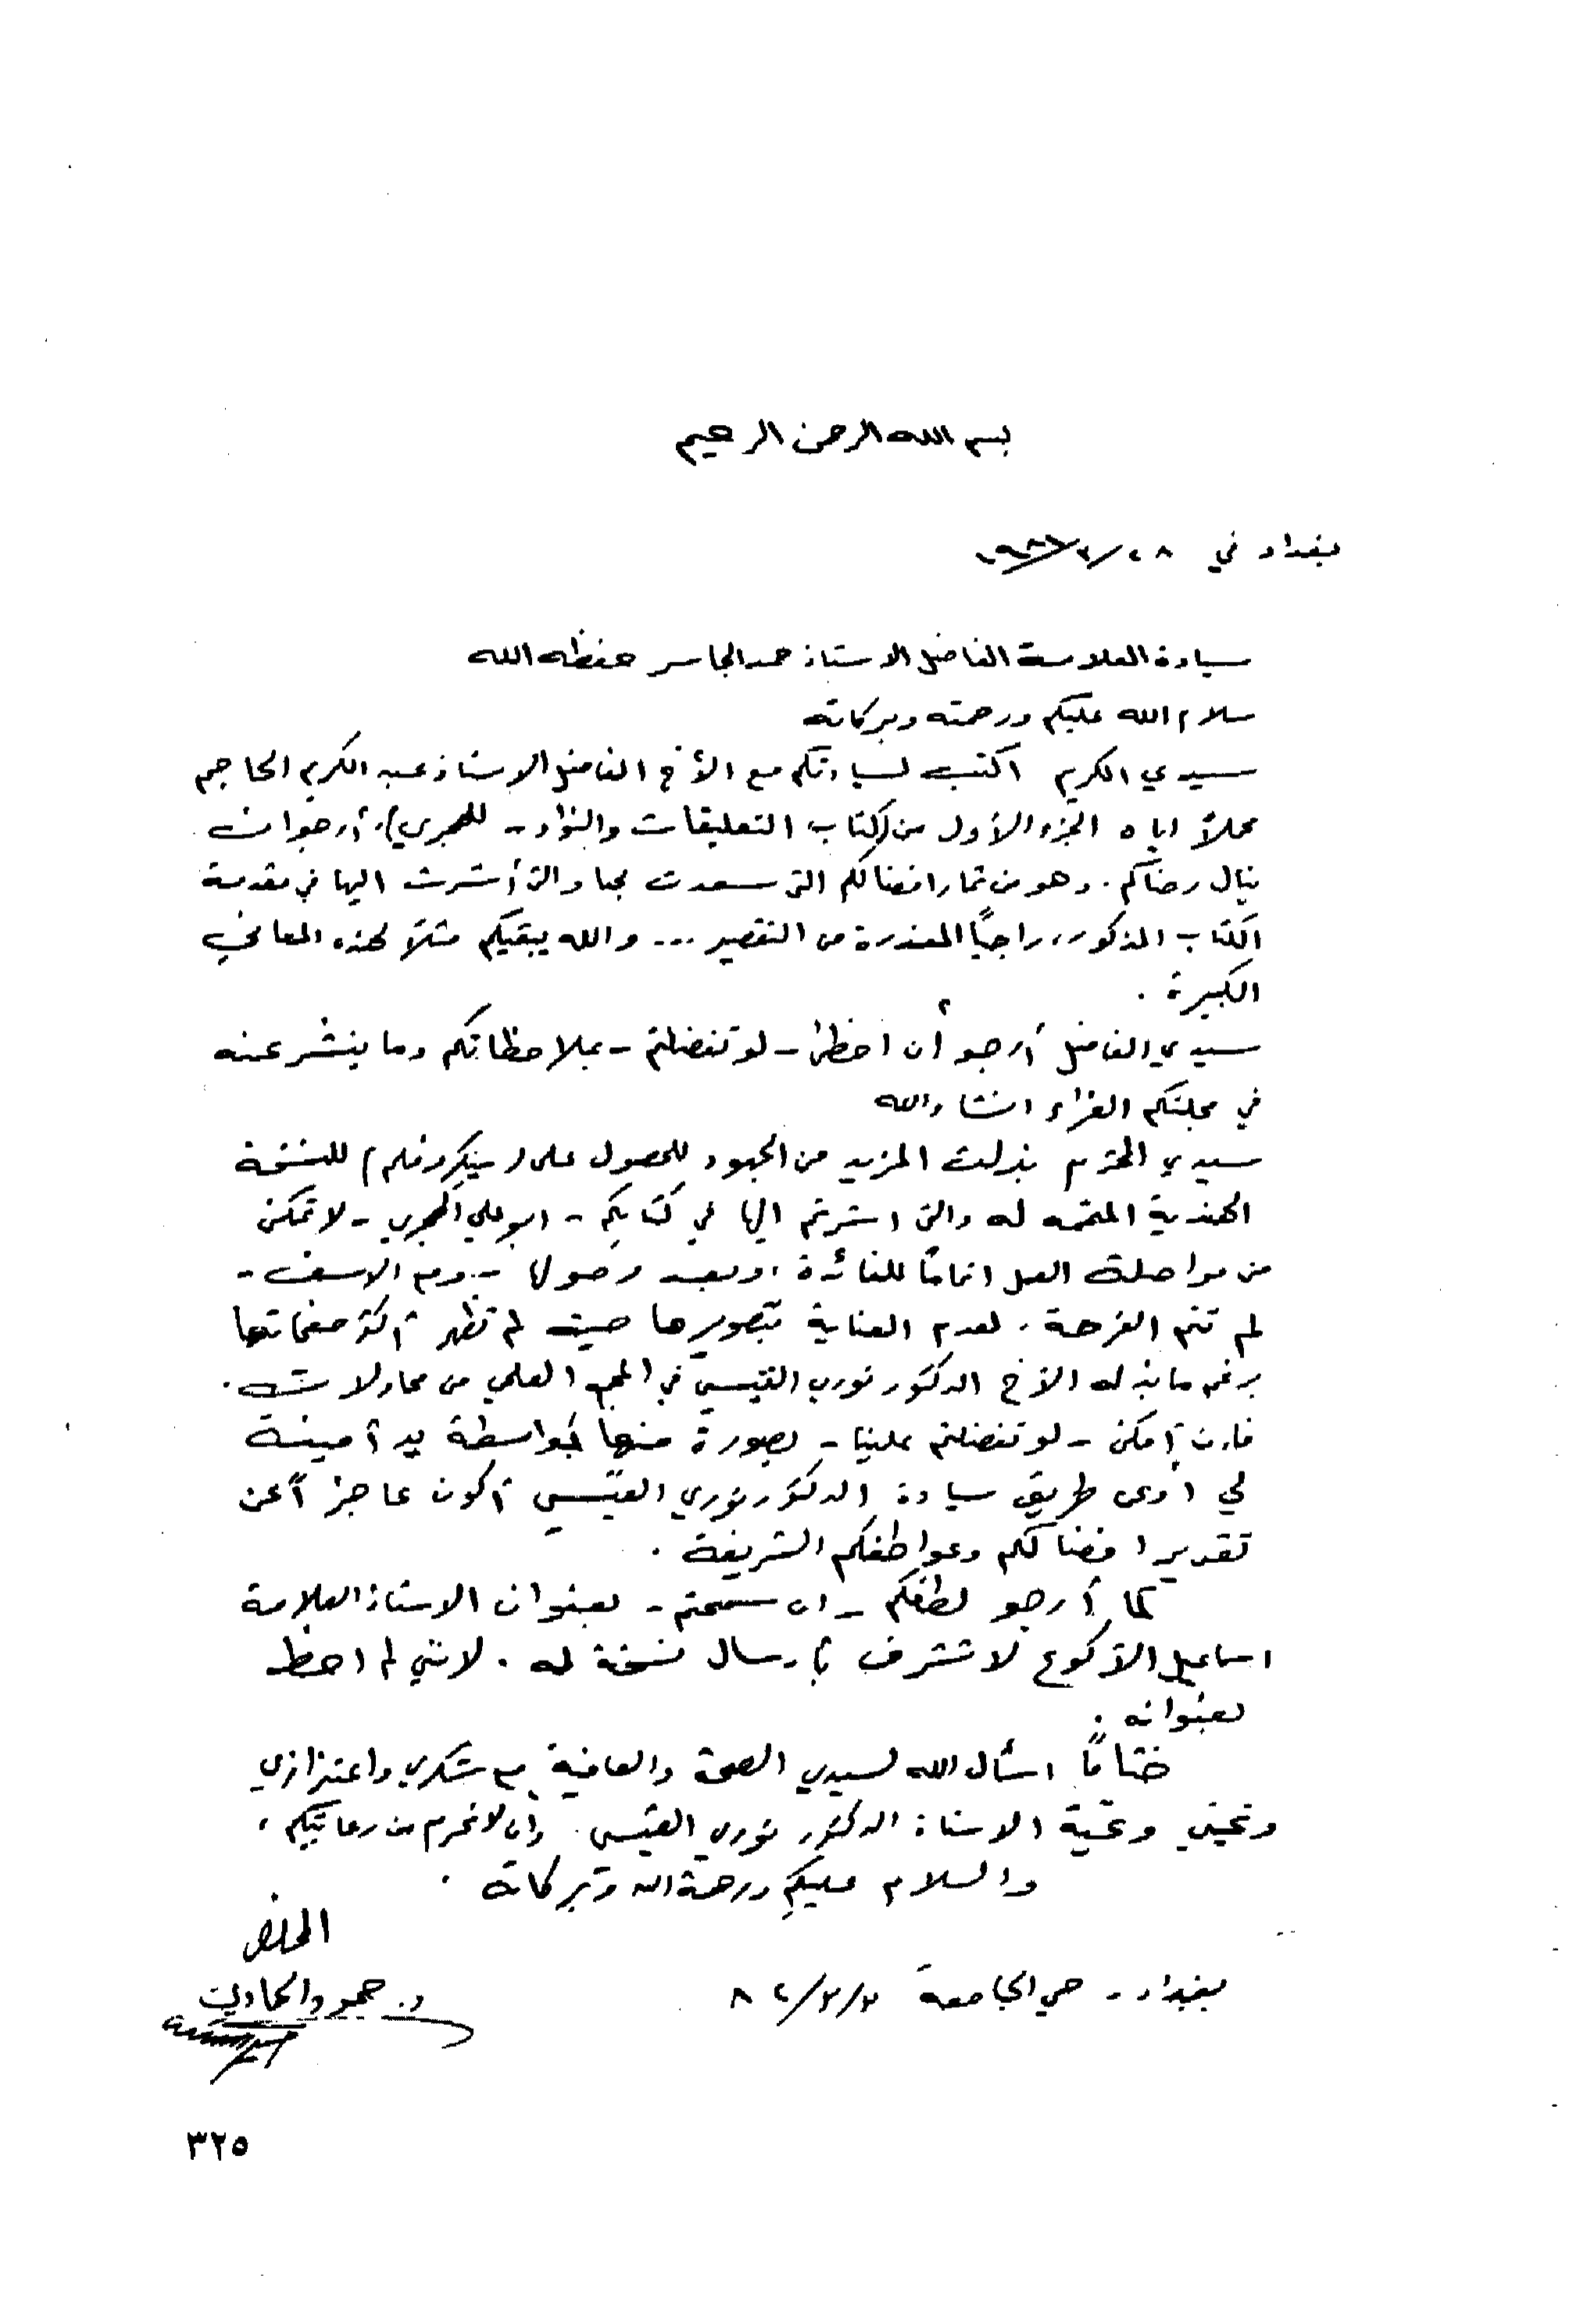 بسم الله الرحمن الرحيم
بغداد في ٢٨/٣/١٩٨١
سيادة العلامة الفاضل الاستاذ حمد الجاسر حفظه الله
سلام الله عليكم ورحمته وبركاته
سيدي الكريم اكتب لسيادتكم مع الأخ الفاضل الاستاذ عبد الكريم الحاجم
محملاً اياه الجزء الأول من (كتاب التعليقات والنوادر - للهجري)، أرجو ان
ينال رضاكم. وهو من ثمار افضالكم التي سعدت بها والتي أشرت اليها في مقدمة
الكتاب المذكور، راجيًا المعذرة من التقصير ... والله يبقيكم مثلاً لهذه المعاني
الكبيرة.
سيدي الفاضل أرجو أن احظى - لو تفضلتم - بملاحظاتكم وما ينشر عنه
في مجلتكم الغراء انشاء الله
سيدي المحترم بذلت المزيد من الجهود للحصول على (ميكروفلم) للنسخة
الهندية المتممه له والتي اشرتم اليها في كتابكم - ابو علي الهجري - لاتمكن
من مواصلة العمل اتمامًا للفائدة، وبعد وصولها - ومع الاسف -
لم تتم الفرحة، لعدم العناية بتصويرها حيث لم تظهر أكثر صفحاتها
برغم ما بذله الأخ الدكتور نوري القيسي في المجمع العلمي من محاولات.
فان أمكن - لو تفضلتم علينا - بصورة منها بواسطة يد أمينة
لي أو عن طريق سيادة الدكتور نوري القيسي أكون عاجزاً عن
تقدير افضالكم وعواطفكم الشريفة.
كما أرجو لطفكم - ان سمحتم - بعنوان الاستاذ العلامة
اسماعيل الأكوع لاتشرف بأرسال نسخة له. لانني لم احظ
بعنوانه.
ختامًا اسأل الله لسيدي الصحة والعافية مع شكري واعتزازي
وتحيتي وتحية الاستاذ الدكتور نوري القيسي. وأن لا نحرم من رعايتكم،
والسلام عليكم ورحمة الله وبركاته.
المخلص
د. حمود الحمادي
بغداد - حي الجامعة ٨٢/٣/٣
٣٢٥